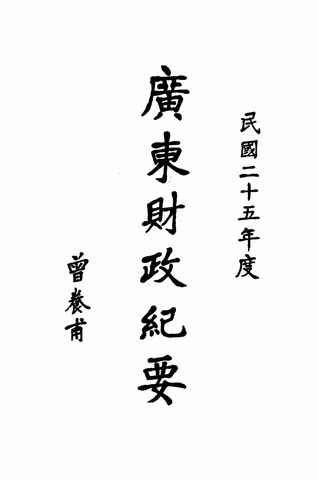 民國二十五年度
廣東財政紀要
曾養甫